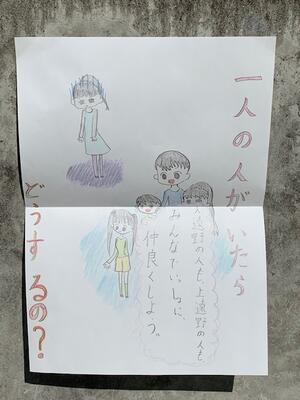 一人の人がいたら
どうするの？
入遠野の人も、上遠野の人も、
みんなでいっしょに、
仲良くしよう。